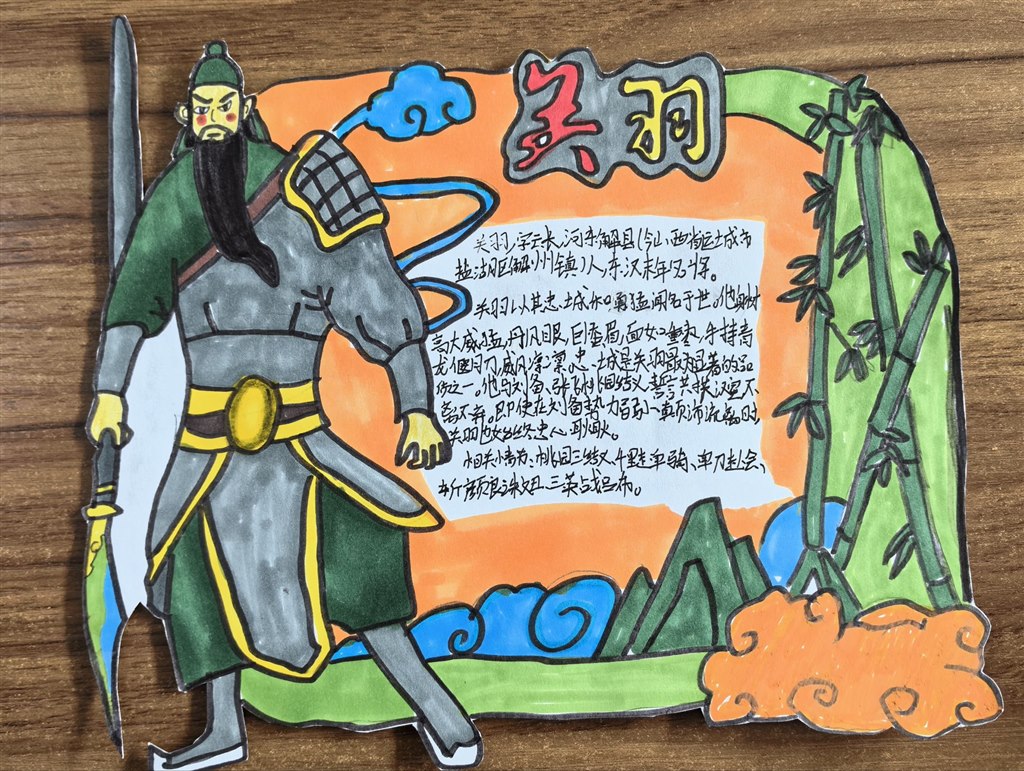 关羽
关羽,字云长,河东解县(今山西省运城市
盐湖区解州镇)人,东汉末年名将。
关羽以其忠诚和勇猛闻名于世。他身材
高大威猛,丹凤眼,卧蚕眉,面如重枣,手持青
龙偃月刀,威风凛凛。忠诚是关羽最显著的品
质之一。他与刘备、张飞桃园结义,誓言共扶汉室不
离不弃。即使在刘备势力弱小颠沛流离时,
关羽也始终忠心耿耿。
相关情节:桃园三结义、千里走单骑、单刀赴会、
斩颜良诛文丑、三英战吕布。